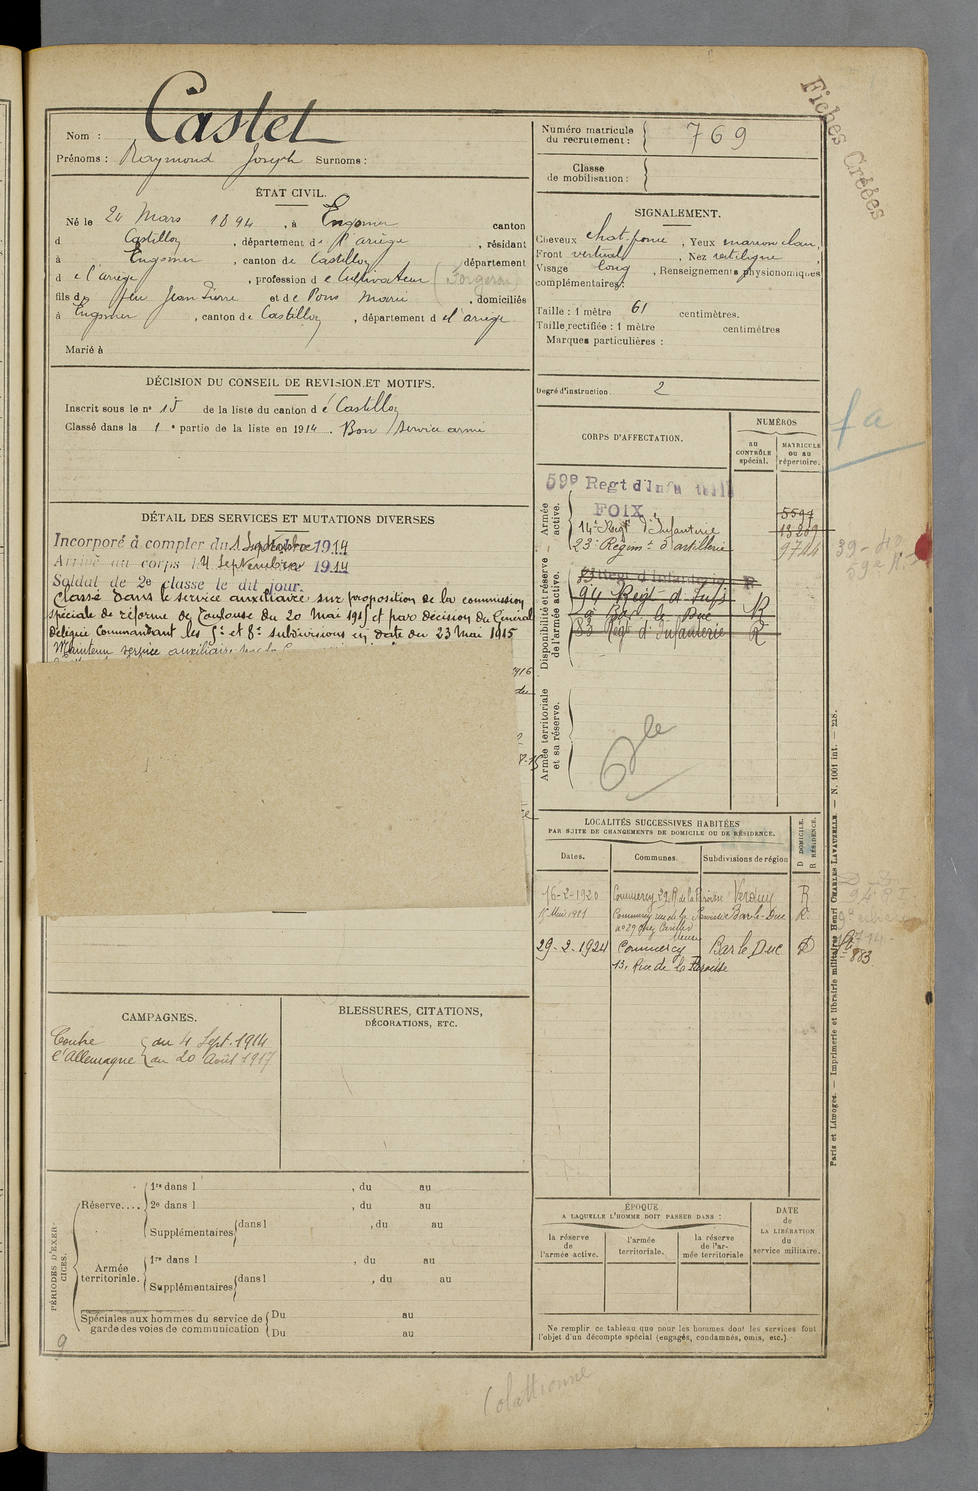 Fiches Créées
Nom : Castet
Prénoms : Raymond Joseph Surnoms :
Numéro matricule du recrutement : 769
Classe de mobilisation :
ÉTAT CIVIL.
Né le 20 Mars 1894, à Engomer canton
d Castillon, département de l'ariège, résidant
à Engomer, canton de Castillon département
d e l'ariège, profession d e Cultivateur (Forgeron)
fils de feu Jean Pierre et de Pons Marie, domiciliés
à Engomer, canton de Castillon, département d e l'ariège
Marié à
SIGNALEMENT.
Cheveux chat. fonce, Yeux marron clair,
Front vertical, Nez rectiligne,
Visage long, Renseignements physionomiques
complémentaires :
Taille : 1 mètre 61 centimètres.
Taille rectifiée : 1 mètre centimètres
Marques particulières :
Degré d'instruction. 2
DÉCISION DU CONSEIL DE REVISION ET MOTIFS.
Inscrit sous le n° 15 de la liste du canton d e Castillon
Classé dans la 1e partie de la liste en 1914. Bon service armé
CORPS D'AFFECTATION.
NUMÉROS
AU CONTRÔLE spécial.
MATRICULE OU AU répertoire.
fa
Armée active.
59e Regt d'Infanterie
FOIX
14e Regt d'Infanterie
23e Régimt d'artillerie 9744
Disponibilité et réserve de l'armée active.
94 Regt d'Infie R
à Bar le Duc R
83 Regt d'Infanterie R
Armée territoriale et sa réserve.
DÉTAIL DES SERVICES ET MUTATIONS DIVERSES
Incorporé à compter du 1 Septembre 1914
Arrivé au corps le 4 Septembre 1914
Soldat de 2e classe le dit jour.
Classé dans le service auxiliaire sur proposition de la commission
spéciale de réforme de Toulouse du 20 mai 1915 et par décision du Général
délégué Commandant les 5e et 8e subdivisions en date du 23 Mai 1915
Maintenu service auxiliaire
LOCALITÉS SUCCESSIVES HABITÉES
PAR SUITE DE CHANGEMENTS DE DOMICILE OU DE RÉSIDENCE.
Dates. Communes. Subdivisions de région D DOMICILE. R RÉSIDENCE.
16-2-1920 Commercy 29 R de la Paroisse Verdun R
Commercy rue de la Paroisse Bar-le-Duc R
29-2-1924 Commercy Bar le Duc D
13, Rue de la Paroisse
883
CAMPAGNES.
Contre l'Allemagne
du 4 Sept. 1914
au 20 Août 1917
BLESSURES, CITATIONS,
DÉCORATIONS, ETC.
PÉRIODES D'EXERCICES.
Réserve....
1re dans l , du au
2e dans l , du au
Supplémentaires dans l , du au
Armée territoriale.
1re dans l , du au
Supplémentaires dans l , du au
Spéciales aux hommes du service de garde des voies de communication
Du au
Du au
ÉPOQUE
A LAQUELLE L'HOMME DOIT PASSER DANS :
la réserve de l'armée active.
l'armée territoriale.
la réserve de l'armée territoriale
DATE de LA LIBÉRATION du service militaire.
Ne remplir ce tableau que pour les hommes dont les services font
l'objet d'un décompte spécial (engagés, condamnés, omis, etc.)
Paris et Limoges. — Imprimerie et librairie militaires Henri CHARLES-LAVAUZELLE. — N. 1001 int. — 218.
9
Colattionné